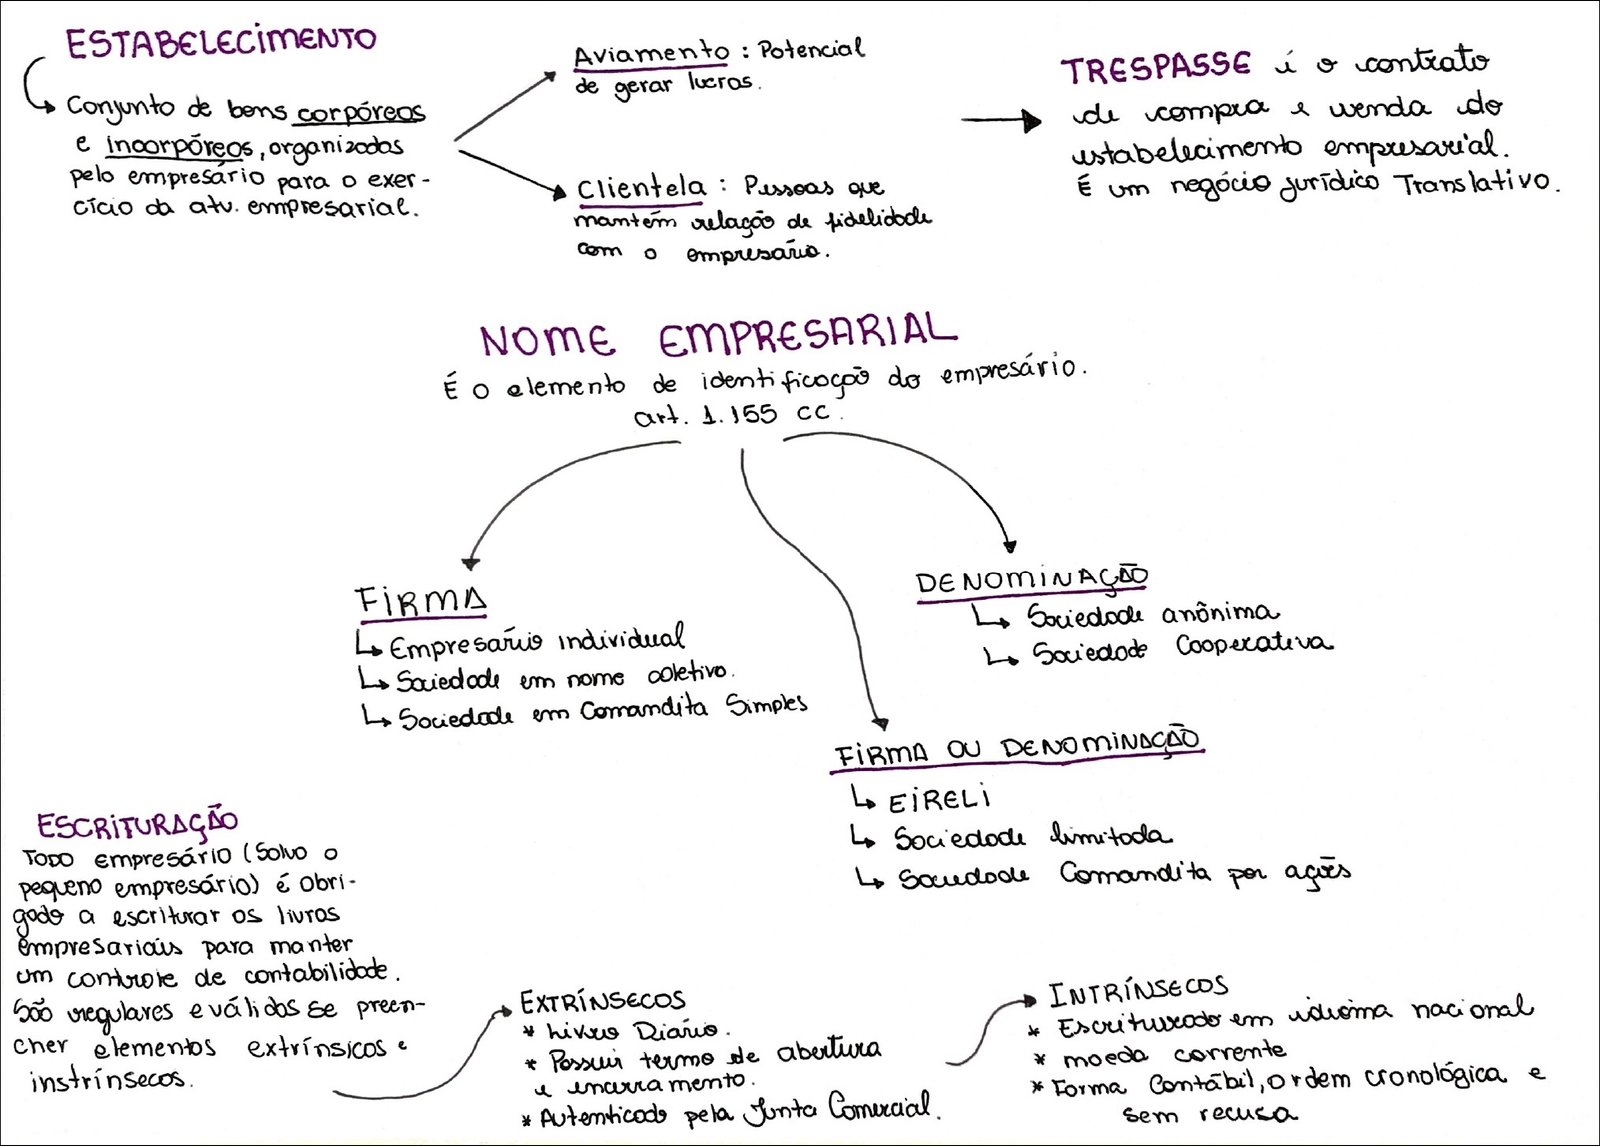 ESTABELECIMENTO
Conjunto de bens corpóreos
e incorpóreos, organizados
pelo empresário para o exer-
cício da atv. empresarial.
Aviamento : Potencial
de gerar lucros.
Clientela : Pessoas que
mantém relação de fidelidade
com o empresário.
TRESPASSE é o contrato
de compra e venda do
estabelecimento empresarial.
É um negócio jurídico Translativo.
NOME EMPRESARIAL
É o elemento de identificação do empresário.
art. 1.155 CC.
FIRMA
Empresário individual
Sociedade em nome coletivo.
Sociedade em Comandita Simples
DENOMINAÇÃO
Sociedade anônima
Sociedade Cooperativa
FIRMA OU DENOMINAÇÃO
EIRELI
Sociedade limitada
Sociedade Comandita por ações
ESCRITURAÇÃO
TODO empresário (Salvo o
pequeno empresário) é obri-
gado a escriturar os livros
empresariais para manter
um controle de contabilidade.
São regulares e válidos se preen-
cher elementos extrínsicos e
instrínsecos.
EXTRÍNSECOS
* Livro Diário.
* Possuir termo de abertura
e encerramento.
* Autenticado pela Junta Comercial.
INTRÍNSECOS
* Escriturado em idioma nacional
* moeda corrente
* Forma Contábil, ordem cronológica e
sem recusa